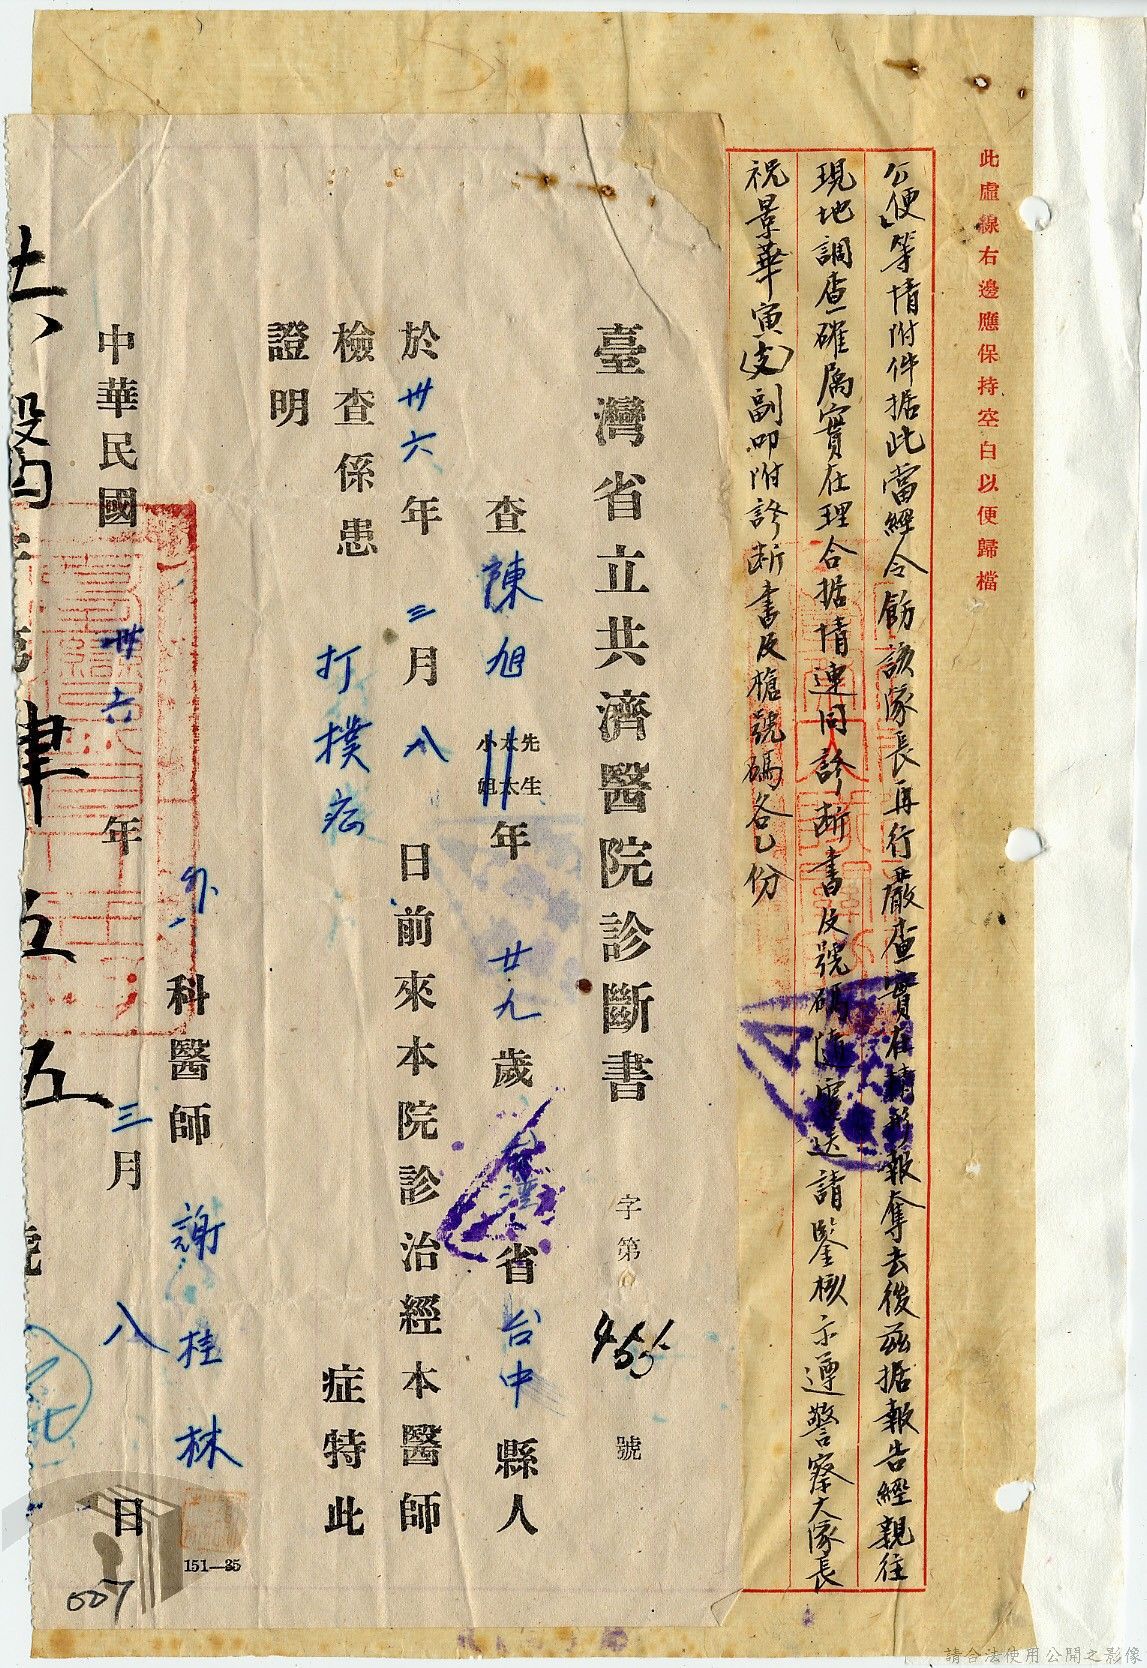 此虛線右邊應保持空白以便歸檔
公便等情附件据此當經令飭該隊長再行嚴查實在情形報奪去後茲据報告經親往
現地調查確屬實在理合据情連同診断書及號碼隨電送請鑒核示遵警察大隊長
祝景華寅(支)副叩附診断書及槍號碼各乙份
臺灣省立共濟醫院診斷書 字第 455 號
查陳旭 先生 太太 小姐 年廿九歲台灣省台中縣人
於卅六年三月八日前來本院診治經本醫師
檢查係患 打撲症 症特此
證明
外科醫師 謝桂林
中華民國卅六年三月八日
共醫字第肆五五號
151—35
007
請合法使用公開之影像